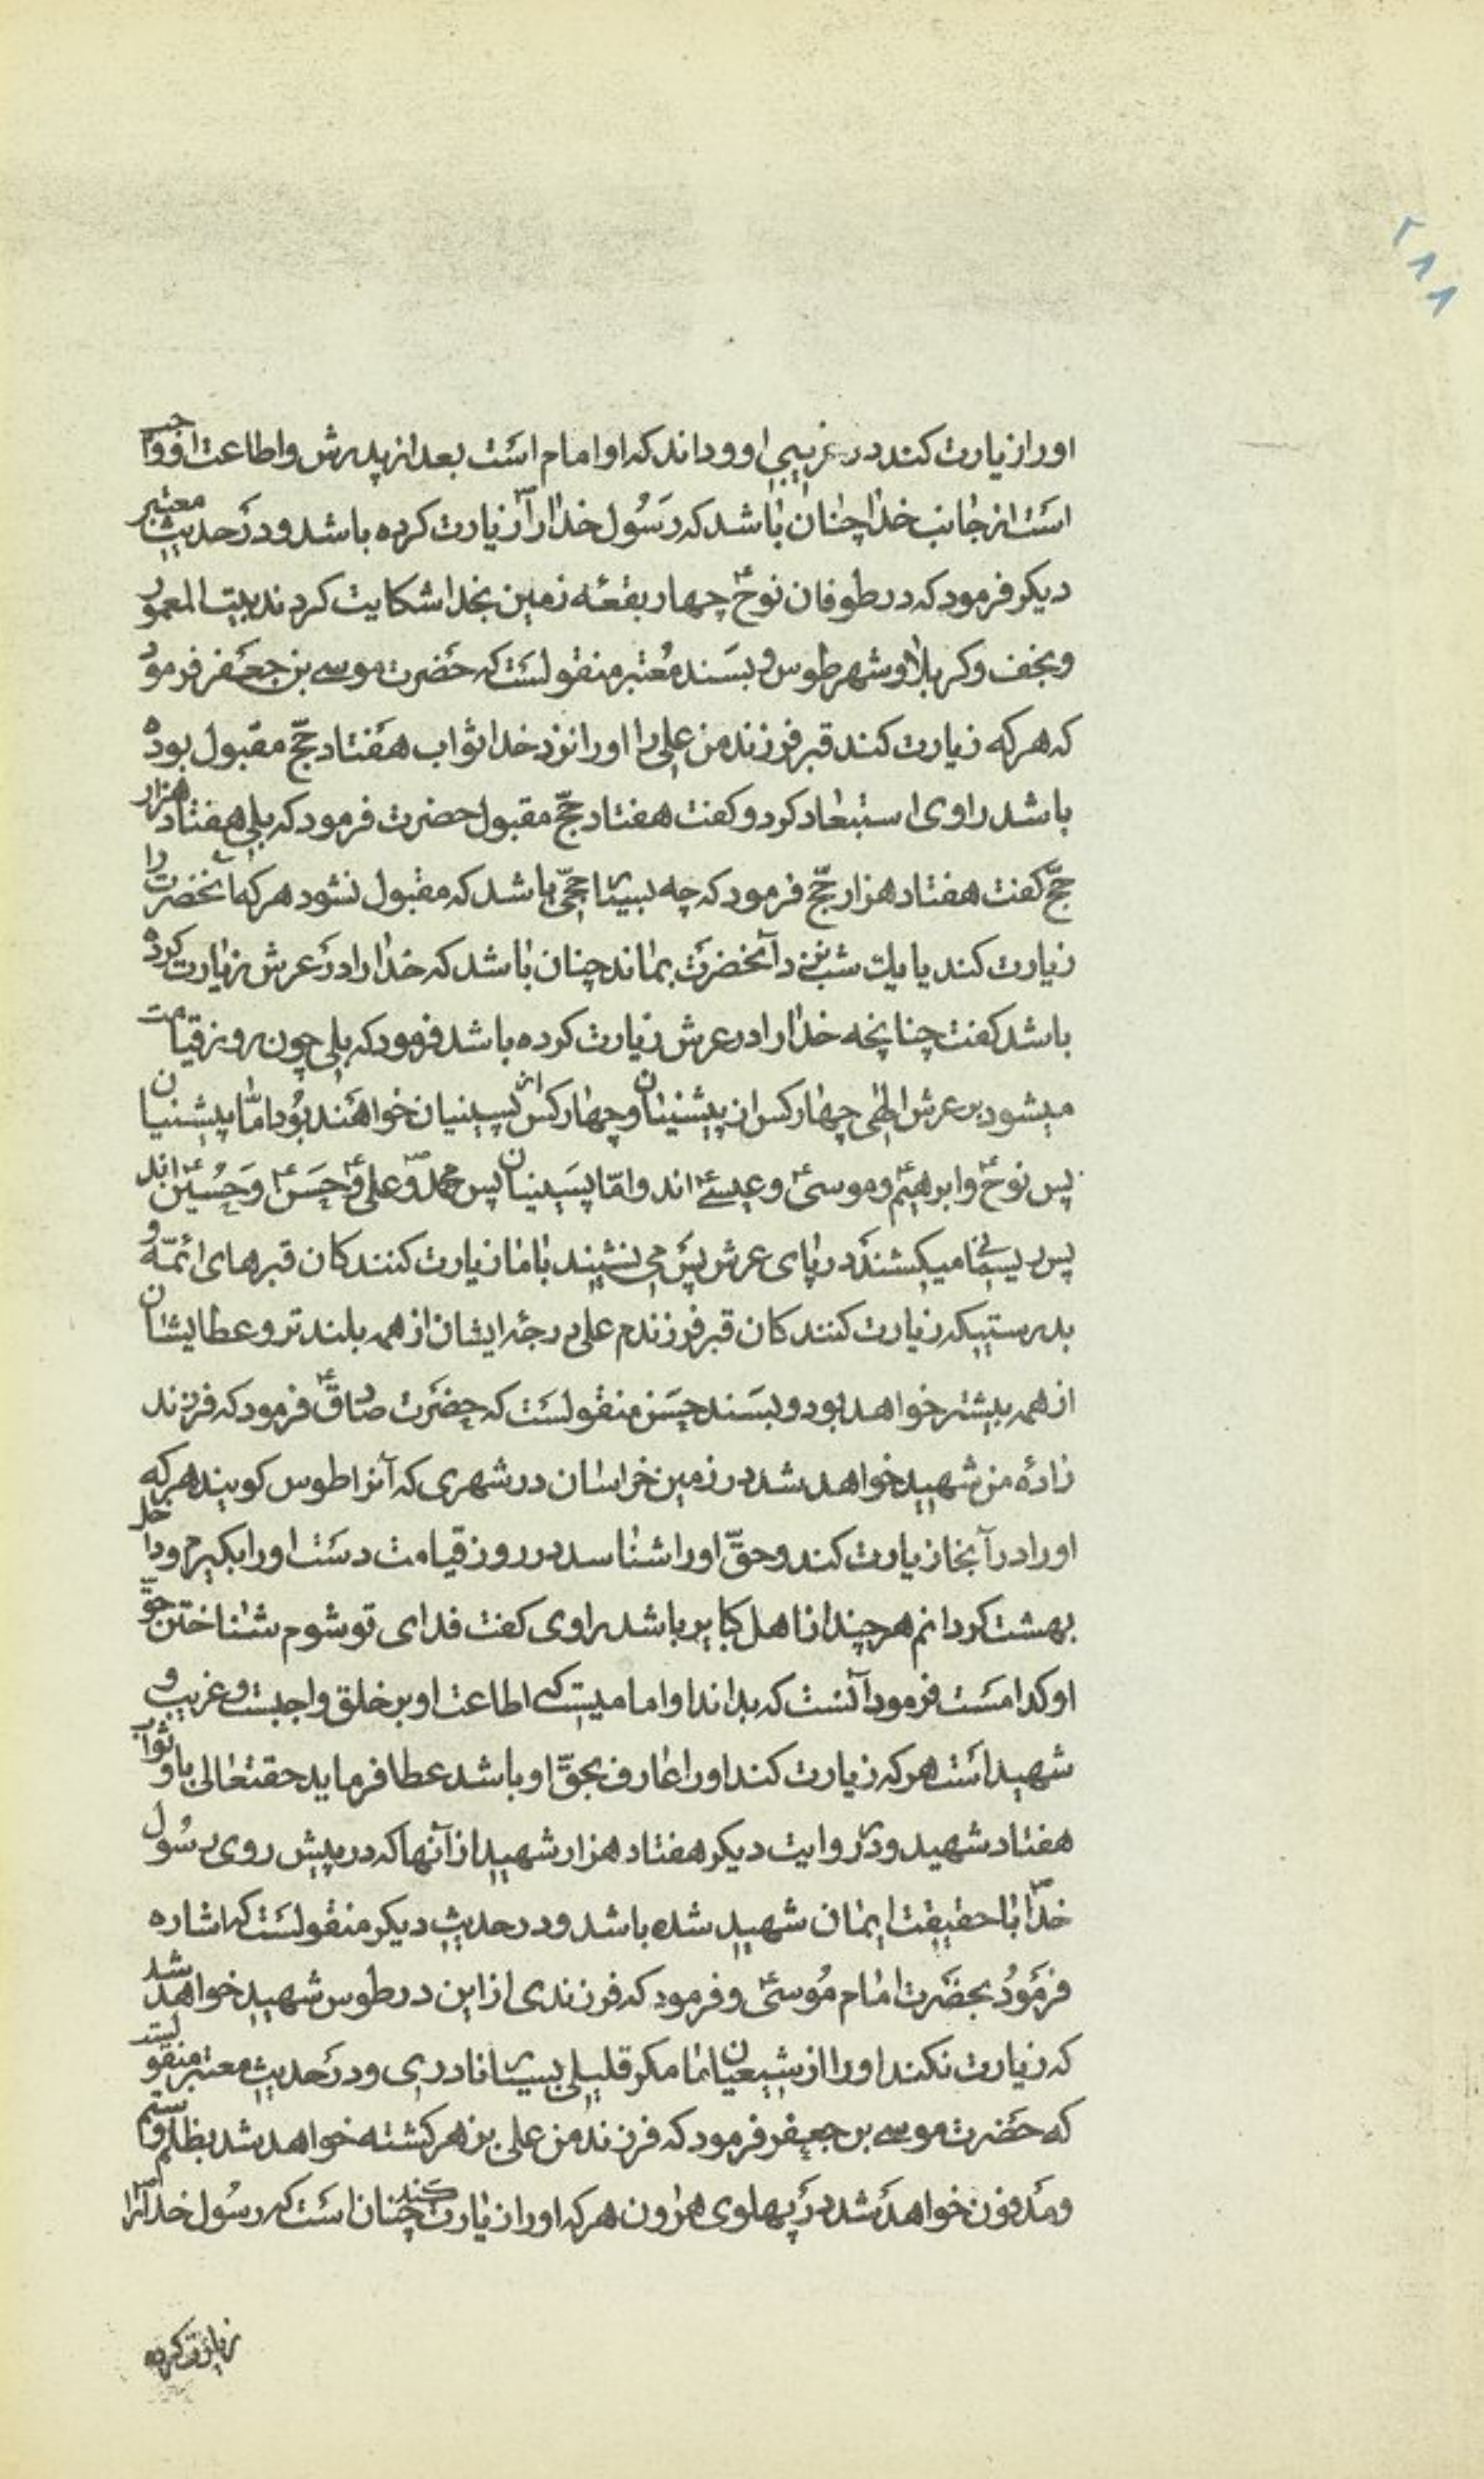 ۲۸۸
اورا زیارت کند در غریبی او و داند که او امام است بعد از پدرش و اطاعت او واجب
است از جانب خدا چنان باشد که رسول خدا را ص زیارت کرده باشد و در حدیث معتبر
دیکر فرمود که در طوفان نوح ع چهار بقعه زمین بخدا شکایت کردند بیت المعمور
و نجف و کربلا و شهر طوس و بسند معتبر منقولست که حضرت موسی بن جعفر فرمود
که هر که زیارت کند قبر فرزند من علی را او را نزد خدا ثواب هفتاد حجّ مقبول بوده
باشد راوی استبعاد کرد و کفت هفتاد حجّ مقبول حضرت فرمود که بلی هفتاد هزار
حجّ کفت هفتاد هزار حجّ فرمود که چه بسیار حجّی باشد که مقبول نشود هر که آنحضرت را
زیارت کند یا یک شب نزد آنحضرت بماند چنان باشد که خدا را در عرش زیارت کرده
باشد کفت چنانچه خدا را در عرش زیارت کرده باشد فرمود که بلی چون روز قیامت
میشود بر عرش الهی چهار کس از پیشینیان و چهار کس از پسینیان خواهند بود امّا پیشینیان
پس نوح ع و ابرهیم ع و موسی ع و عیسی ع اند و امّا پسینیان پس محمد ص و علی ع و حسن ع و حسین ع اند
پس ریسمانی میکشند در پای عرش پس می نشیند با ما زیارت کنندکان قبرهای ائمّه و
بدرستیکه زیارت کنندکان قبر فرزندم علی درجهٔ ایشان از همه بلندتر و عطا یشان
از همه بیشتر خواهد بود و بسند حسن منقولست که حضرت صادق ع فرمود که فرزند
زادهٔ من شهید خواهد شد در زمین خراسان در شهری که آنرا طوس کویند هر که
اورا در آنجا زیارت کند و حقّ اورا شناسد در روز قیامت دست اورا بکیرم و داخل
بهشت کردانم هر چند از اهل کبایر باشد راوی کفت فدای تو شوم شناختن حقّ
او کدامست فرمود آنست که بداند او امامیست که اطاعت او بر خلق واجبست و غریب و
شهید است هر که زیارت کند اورا عارف بحقّ او باشد عطا فرماید حقتعالی باو ثواب
هفتاد شهید و در روایت دیکر هفتاد هزار شهید از آنها که در پیش روی رسول
خدا ص با حقیقت ایمان شهید شده باشد و در حدیث دیکر منقولست که اشاره
فرمود بحضرت امام موسی ع و فرمود که فرزندی از این در طوس شهید خواهد شد
که زیارت نکند اورا از شیعیان ما مکر قلیلی بسیار نادری و در حدیث معتبر منقولست
که حضرت موسی بن جعفر فرمود که فرزند من علی بزهر کشته خواهد شد بظلم و ستم
و مدفون خواهد شد در پهلوی هرون هر که اورا زیارت کند چنان است که رسول خدا را ص
زیارت کرده